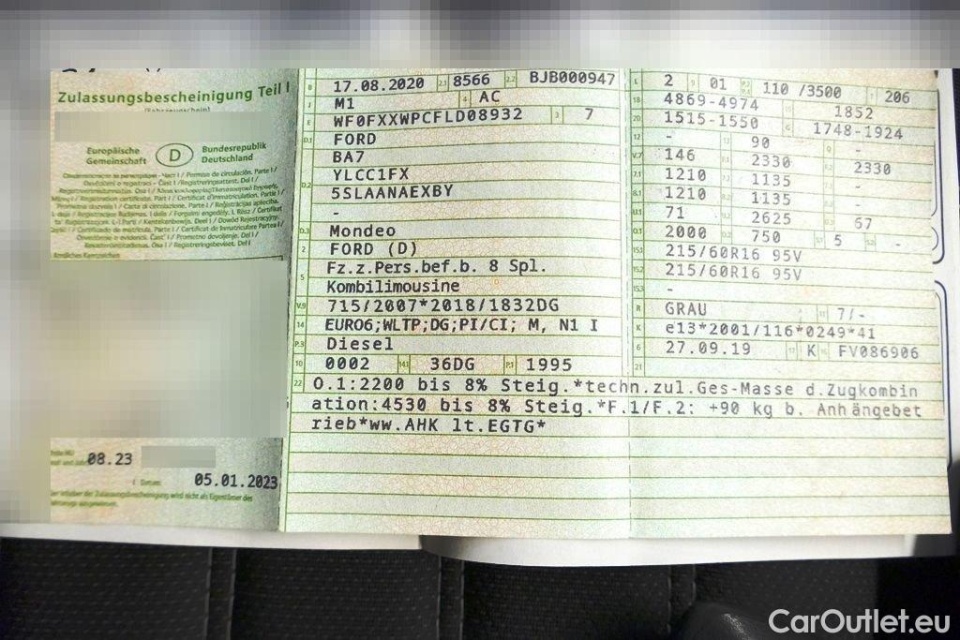 Zulassungsbescheinigung Teil I
Europäische Gemeinschaft
D
Bundesrepublik Deutschland
08.23
05.01.2023
B 17.08.2020 2.1 8566 2.2 BJB000947
J M1 4 AC
E WF0FXXWPCFLD08932 3 7
D.1 FORD
BA7
D.2 YLCC1FX
5SLAANAEXBY
-
D.3 Mondeo
2 FORD (D)
5 Fz.z.Pers.bef.b. 8 Spl.
Kombilimousine
V.9 715/2007*2018/1832DG
14 EURO6;WLTP;DG;PI/CI; M, N1 I
P.3 Diesel
10 0002 14.1 36DG P.1 1995
L 2 9 01 110 /3500 T 206
18 4869-4974 1852
20 1515-1550 G 1748-1924
12 - 90 -
V.7 146 2330 2330
7.1 1210 1135 -
8.1 1210 1135 -
U.1 71 2625 67
O.1 2000 O.2 750 S.1 5 S.2 -
15.1 215/60R16 95V
15.2 215/60R16 95V
15.3 -
R GRAU 7/-
K e13*2001/116*0249*41
6 27.09.19 17 K 16 FV086906
21
22 O.1:2200 bis 8% Steig.*techn.zul.Ges-Masse d.Zugkombin
ation:4530 bis 8% Steig.*F.1/F.2: +90 kg b. Anhängebet
rieb*ww.AHK lt.EGTG*
CarOutlet.eu